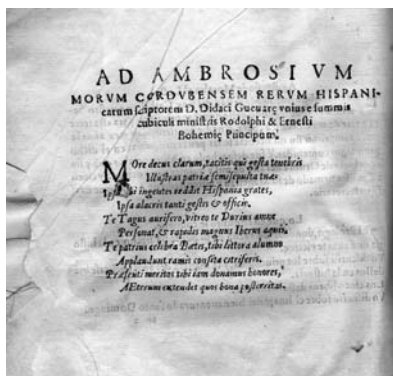 AD AMBROSIVM
MORVM CORDVBENSEM RERVM HISPANI-
carum scriptorem D. Didaci Gueuarę vnius e summis
cubiculi ministris Rodolphi & Ernesti
Bohemię Principum.
More decus clarum, tacitis qui gesta tenebris
Illustras patriæ semisepulta tuæ:
ingentes reddit Hispania grates,
Ipsa alacris tanti gestis & officiis.
Te Tagus aurifero, vitreo te Durius amne
Personat, & rapidis magnus Iberus aquis.
Te patrius celebrat Bætis, tibi littora alumno
Applaudunt ramis consita
Præsenti meritos tibi iam donamus honores,
AEternum extendet quos bona posteritas.